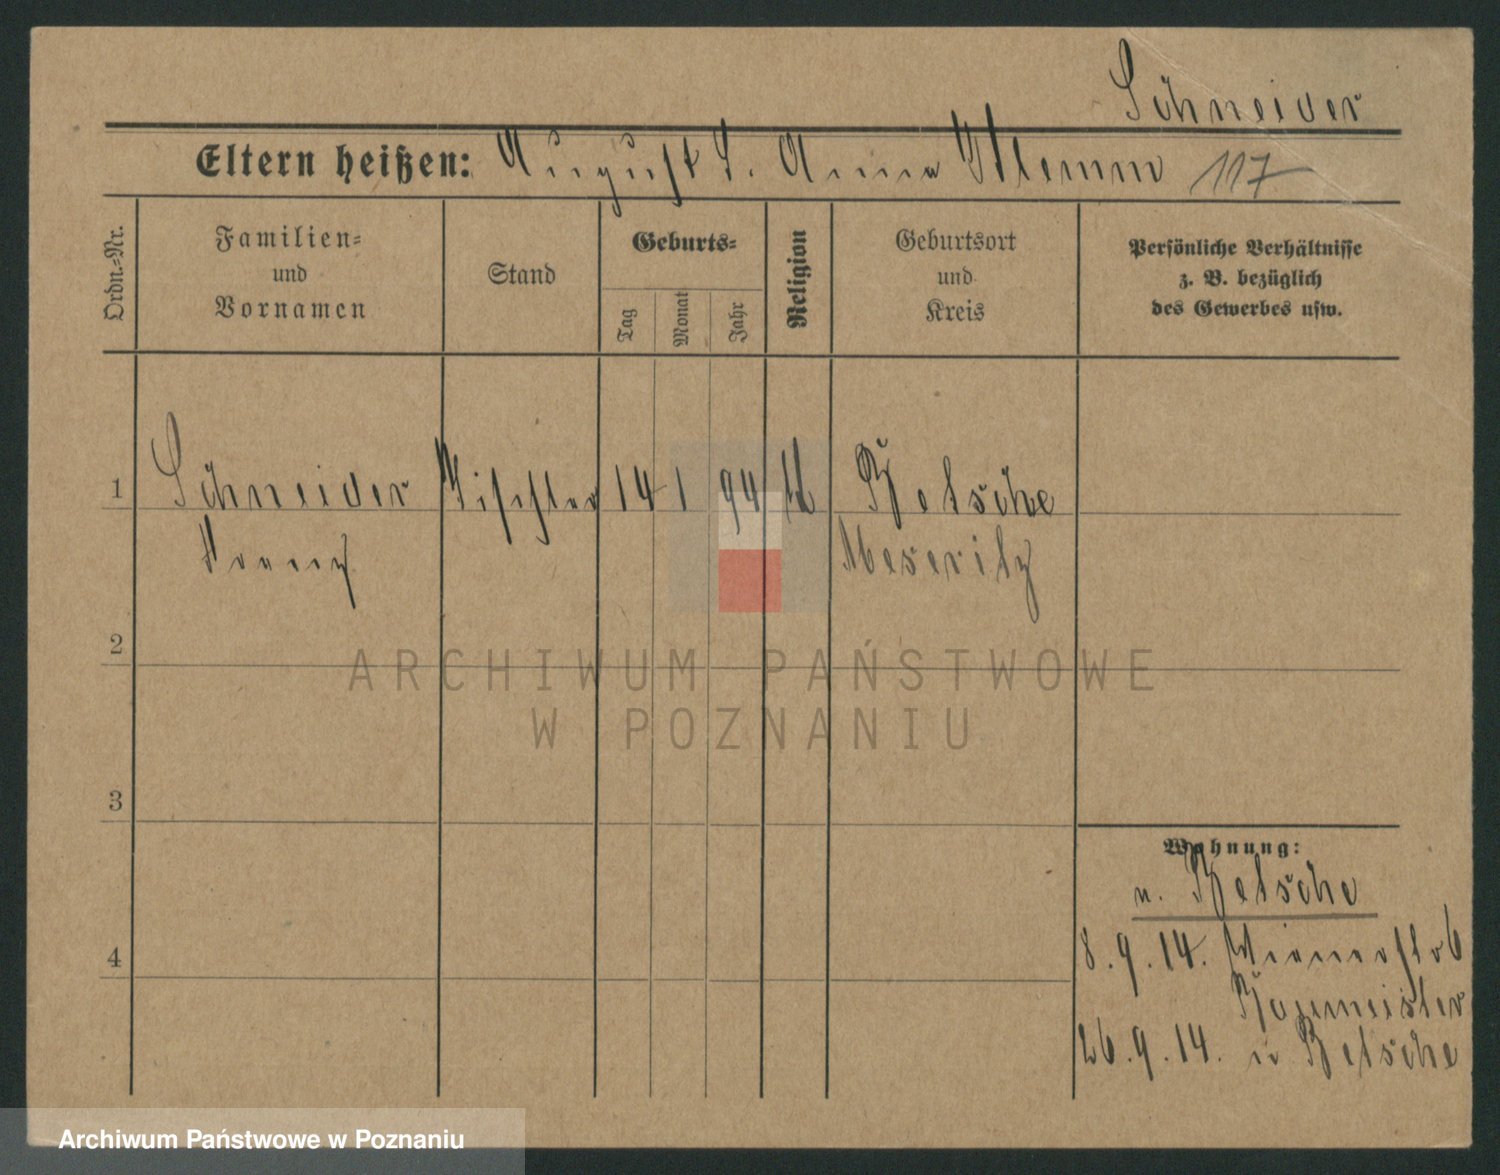 Schneider
Eltern heißen: August S. Anna Klemm 117
Ordn.-Nr.
Familien-
und
Vornamen
Stand
Geburts-
Tag
Monat
Jahr
Religion
Geburtsort
und
Kreis
Persönliche Verhältnisse
z. B. bezüglich
des Gewerbes usw.
1 Schneider Tischler 14 1 94 Betsche
Franz Meseritz
2
3
4
Wohnung:
n. Betsche
8.9.14.
Baumeister
26.9.14. n Betsche
ARCHIWUM PAŃSTWOWE
W POZNANIU
Archiwum Państwowe w Poznaniu